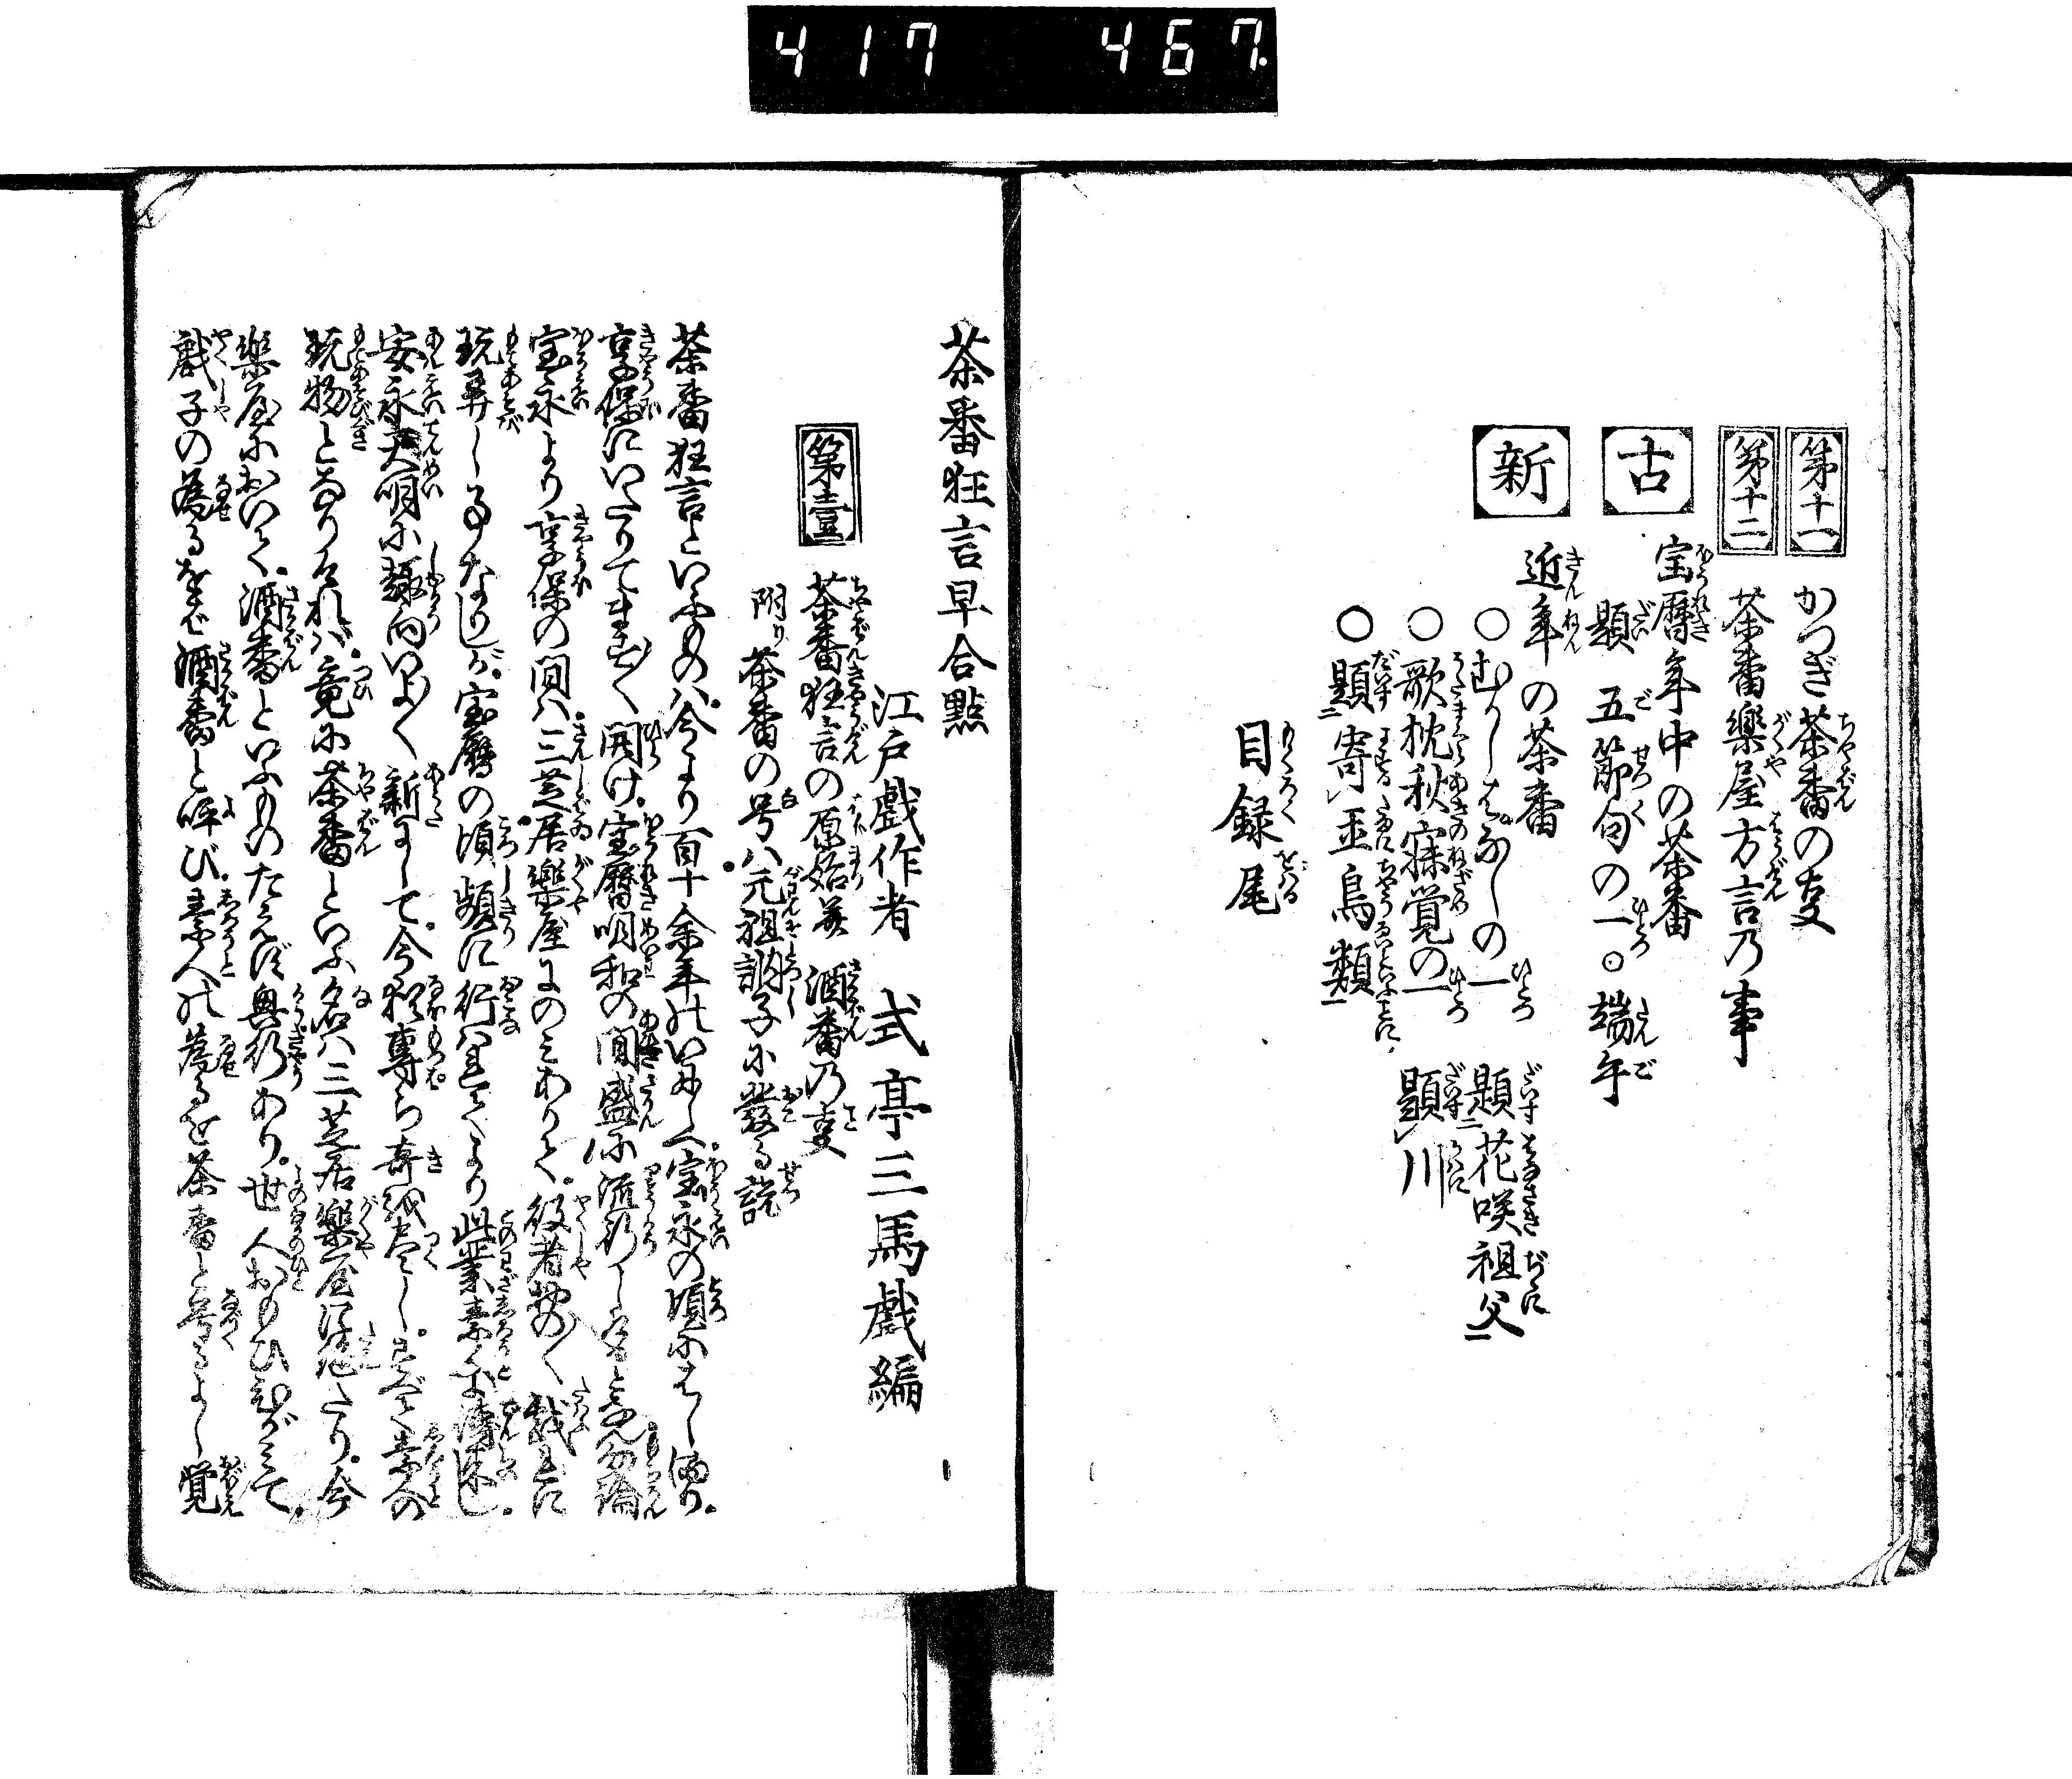 417 467.
第十一 かつぎ茶番の叓
第十二 茶番樂屋方言乃事
古 宝暦年中の茶番
題 五節句の一〇端午
新 近年の茶番
○むかしはなしの一 題花咲祖父
○歌枕秋寐覚の一 題川
○題寄玉鳥類
目録尾
茶番狂言早合點
江戸戯作者 式亭三馬戯編
第壹 茶番狂言の原始并酒番乃叓
附リ茶番の号ハ元祖訥子に發る説
茶番狂言といふものハ今より百十余年のいにしへ宝永の頃にはしまり
享保にいたりてます〳〵開け宝暦明和の間盛に流行しゝと勿論
宝永より享保の間ハ三芝居樂屋にのミありて役者おの〳〵戯に
玩弄しゝ事なりしが宝暦の頃頻に行ハれてより此業素人に傳来し
安永天明に趣向いよ〳〵新にして今猶專ら奇を尽しすべて素人の
玩物となりけれバ竟に茶番といふ名ハ三芝居樂屋に絶たり今
樂屋において酒番といふものたえず興行あり世人おもひむがミて
戯子の為るをば酒番と呼び素人の為るを茶番と号るよし覚